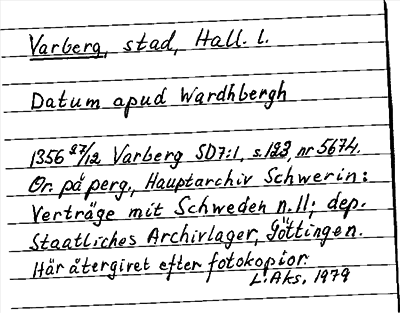 Varberg, stad, Hall. l.
Datum apud Wardhbergh
1356 27/12 Varberg SD7:1, s.123, nr 5674.
Or. på perg., Hauptarchiv Schwerin:
Verträge mit Schweden n. 11; dep.
Staatliches Archivlager, Göttingen.
Här återgivet efter fotokopior.
L. Aks, 1979